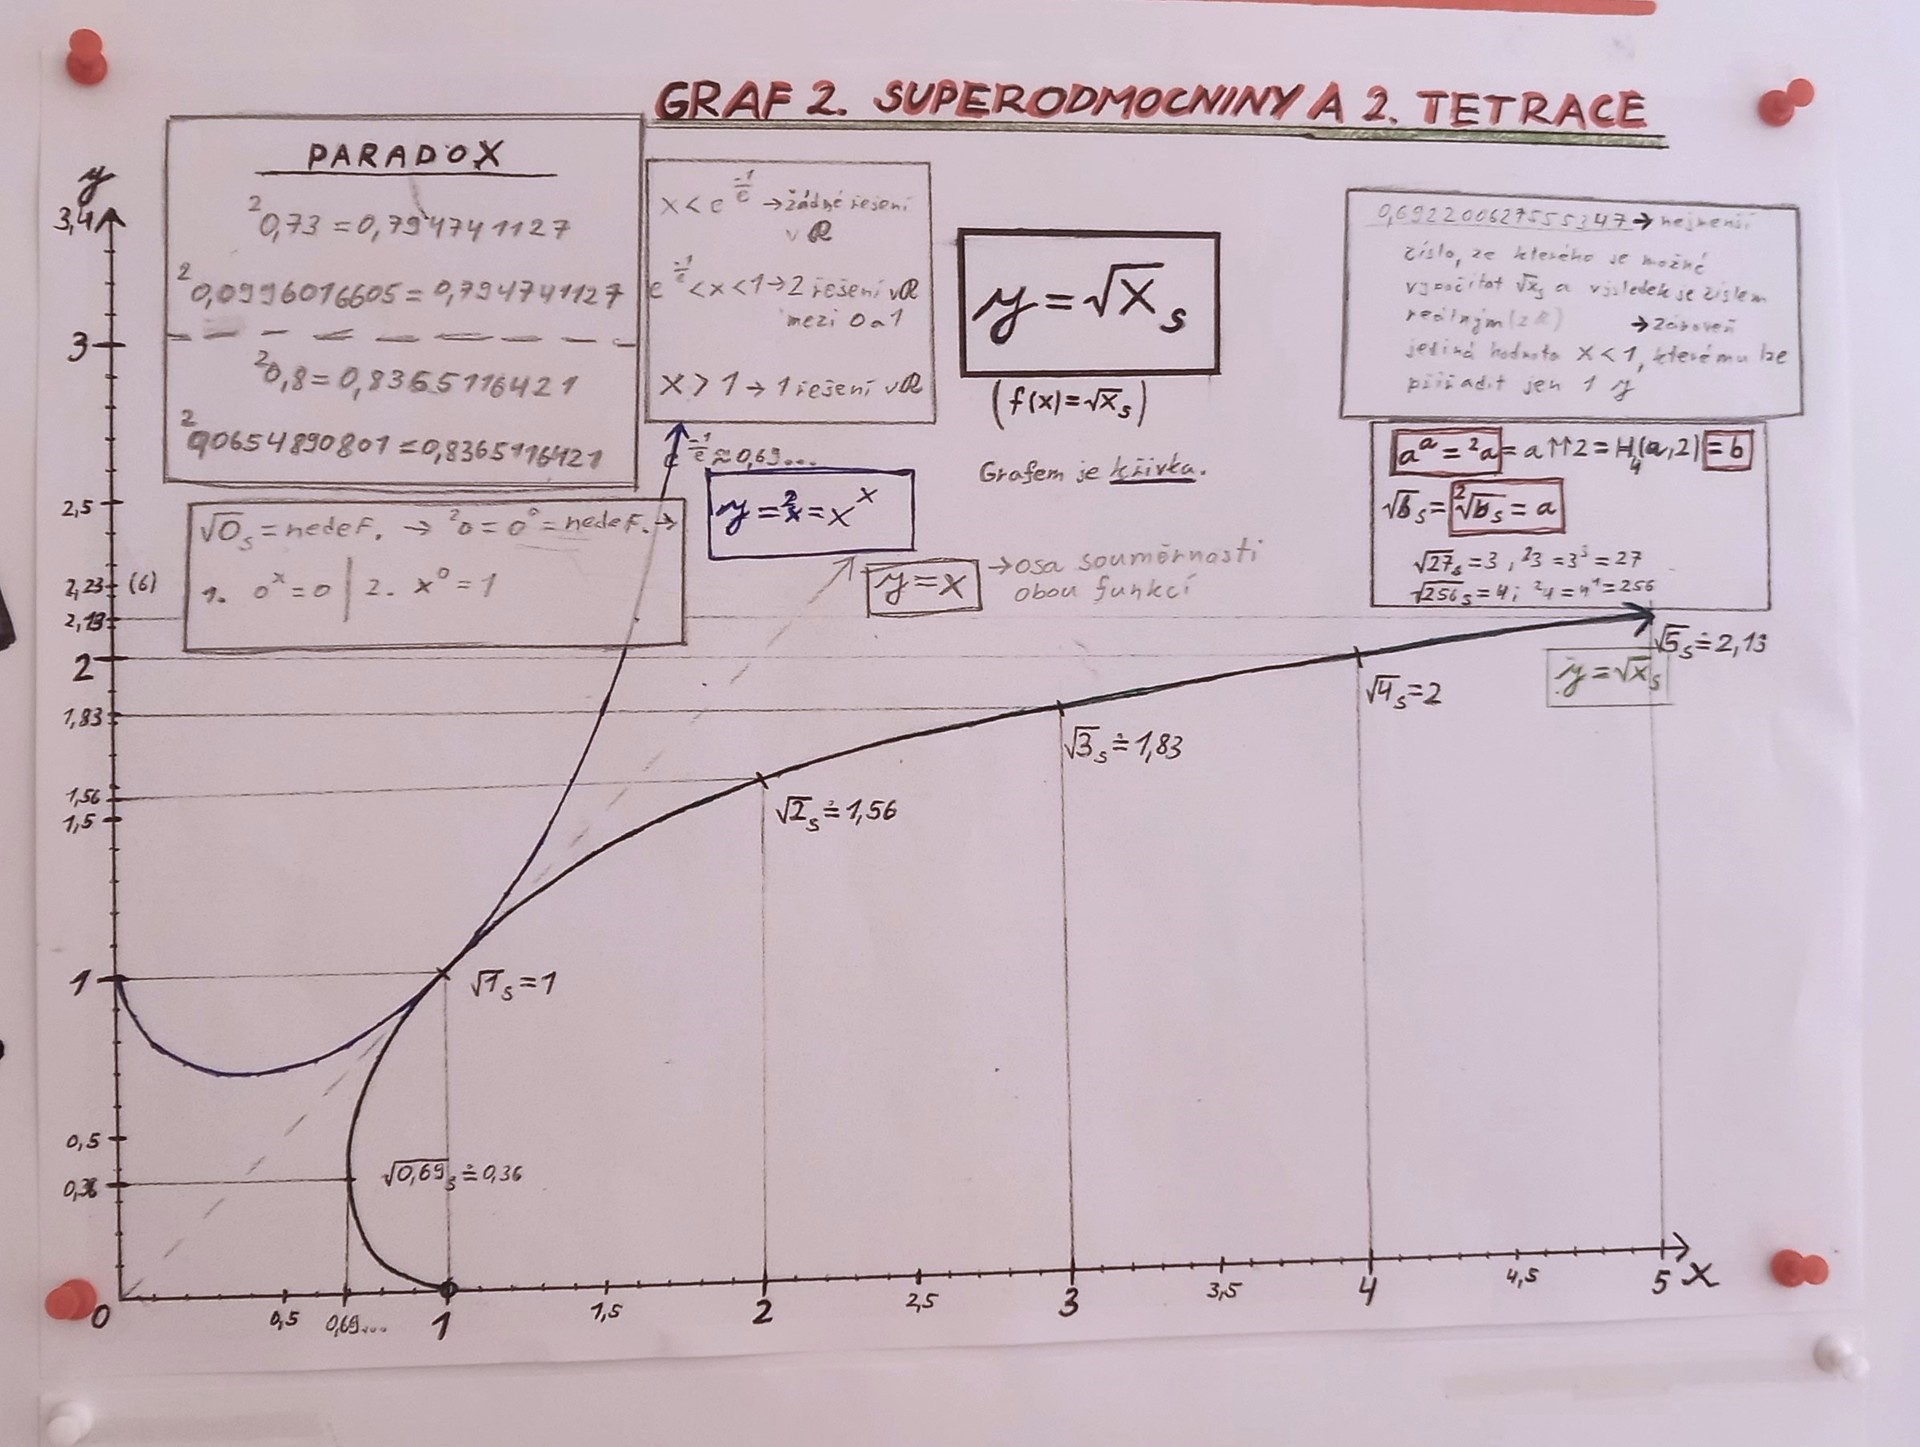 GRAF 2. SUPERODMOCNINY A 2. TETRACE
PARADOX
²0,73 = 0,794741127
²0,0996016605 = 0,794741127
²0,8 = 0,8365116421
²0,0654890801 = 0,8365116421
x < e^(-1/e) → žádné řešení
v ℝ
e^(-1/e) < x < 1 → 2 řešení v ℝ
mezi 0 a 1
x > 1 → 1 řešení v ℝ
y = √x_s
(f(x) = √x_s)
Grafem je křivka.
0,692200627555347 → nejmenší
číslo, ze kterého je možné
vypočítat √x_s a výsledek je číslem
reálným (z ℝ) → zároveň
jediná hodnota x < 1, kterému lze
přiřadit jen 1 y
aᵃ = ²a = a↑↑2 = H₄(a,2) = b
√b_s = ²√b_s = a
√27_s = 3, ²3 = 3³ = 27
√256_s = 4; ²4 = 4⁴ = 256
√0_s = nedef. → ²0 = 0⁰ = nedef. →
1. 0ˣ = 0 | 2. x⁰ = 1
e^(-1/e) ≈ 0,69...
y = ²x = xˣ
y = x → osa souměrnosti
obou funkcí
y
3,4
3
2,5
2,23 (6)
2,13
2
1,83
1,56
1,5
1
0,5
0,36
√5_s ≐ 2,13
y = √x_s
√4_s = 2
√3_s ≐ 1,83
√2_s ≐ 1,56
√1_s = 1
√0,69_s ≐ 0,36
0 0,5 0,69... 1 1,5 2 2,5 3 3,5 4 4,5 5 x